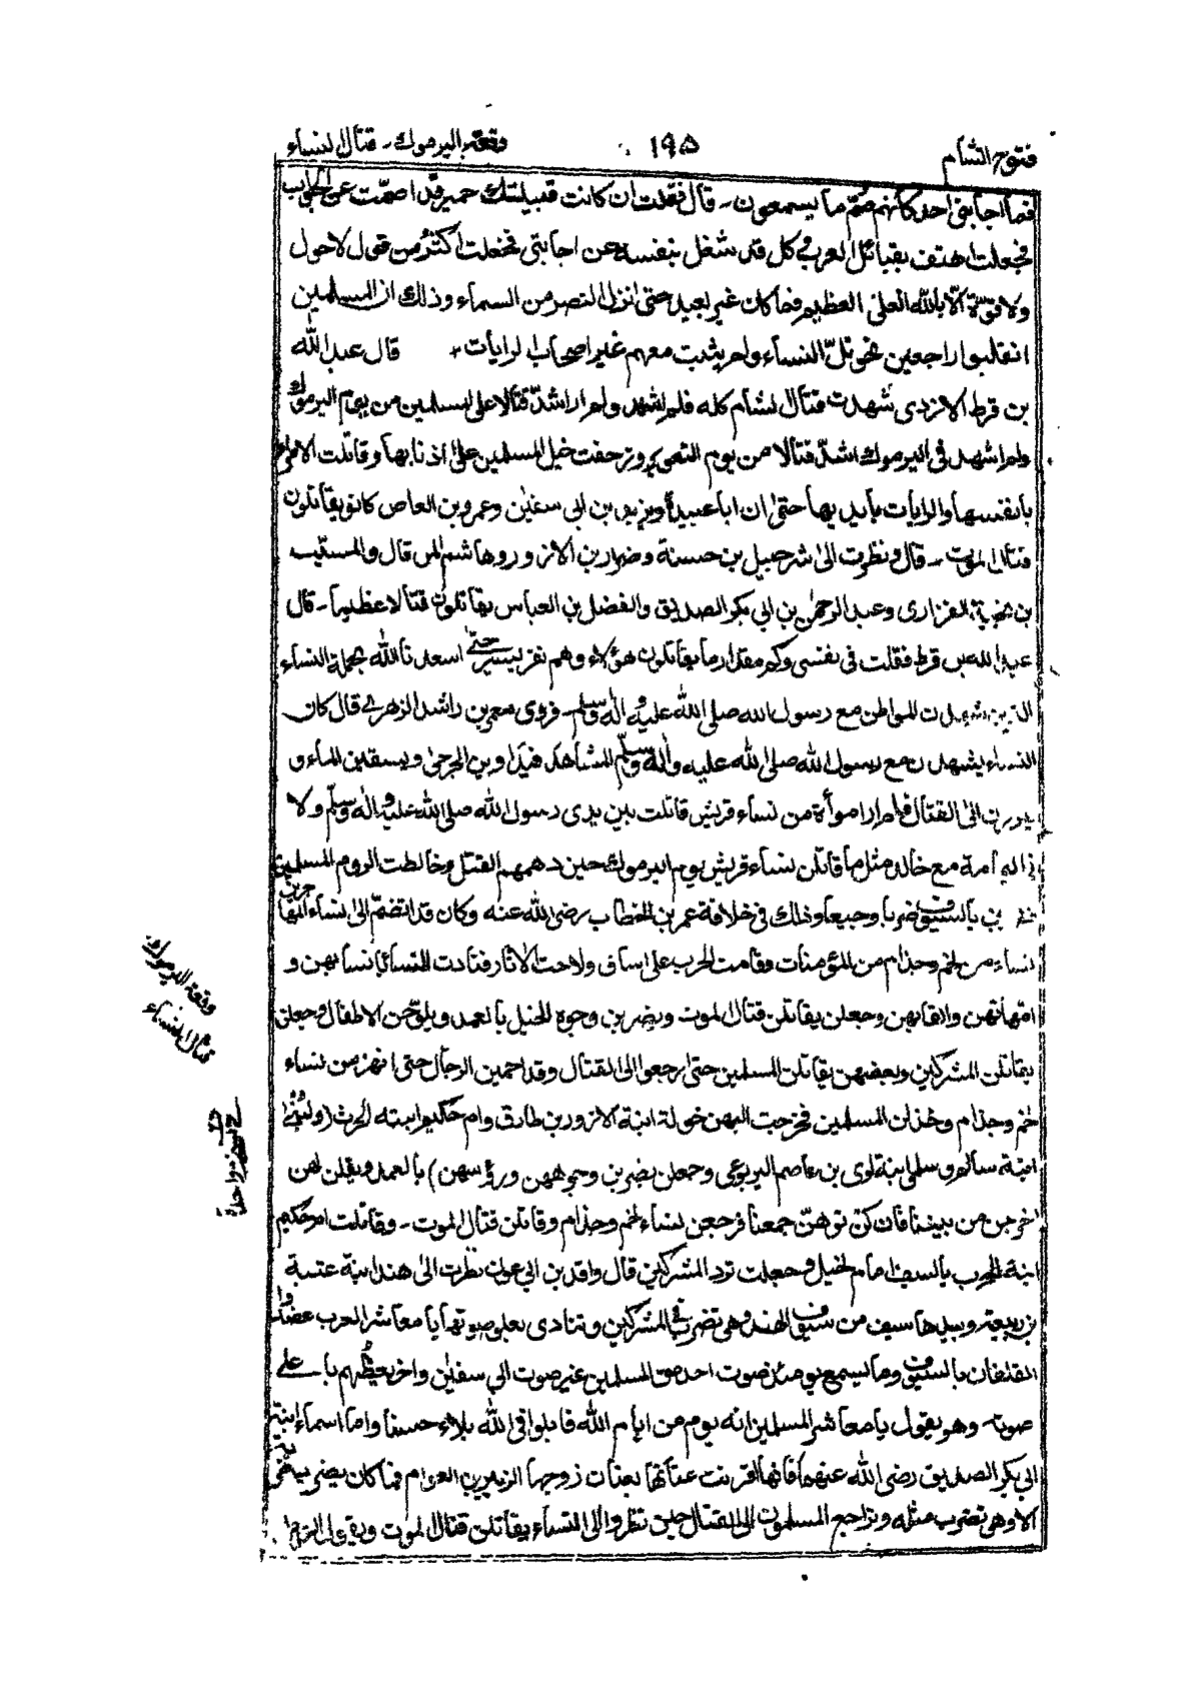 فتوح الشام ١٩٥ وقعة اليرموك - قتال النساء
فما اجابنى احد كأنهم صُمّ ما يسمعون - قال فقلت ان كانت قبيلتك حمير قد اصمّت عن الجواب
فجعلت اهتف بقبائل العرب وكل قد شغل بنفسه عن اجابتى فجعلت اكثر من قول لا حول
ولا قوّة الّا بالله العلى العظيم فما كان غير بعيد حتى انزل النصر من السماء وذلك ان المسلمين
انقلبوا راجعين نحو تلّ النساء ولم يثبت معهم غير اصحاب الرايات + قال عبد الله
بن قرط الازدى شهدت قتال الشام كله فلم اشهد ولم ار اشدّ قتالا على المسلمين من يوم اليرموك
ولم اشهد فى اليرموك اشدّ قتالا من يوم التعوير وزحفت خيل المسلمين على اذنابها وقاتلت الامراء
بانفسها والرايات بايديها حتى ان ابا عبيدة ويزيد بن ابى سفين وعمرو بن العاص كانوا يقاتلون
قتال الموت - قال ونظرت الى شرحبيل بن حسنة وضرار بن الازور وهاشم المرقال والمستيب
بن نجية الفزارى وعبد الرحمن بن ابى بكر الصديق والفضل بن العباس يقاتلون قتالا عظيما - قال
عبد الله بن قرط فقلت فى نفسى وكم مقدار ما يقاتلون هؤلاء وهم نفر يسير حتى اسعدنا الله بحملة النساء
الذين شهدت المواطن مع رسول الله صلى الله عليه وآله وسلم - فروى معمر بن راشد الزهرى قال كان
النساء يشهدن مع رسول الله صلى الله عليه وآله وسلّم المشاهد فيداوين الجرحى ويسقين الماء و
يبرزن الى القتال فلم ار امرأة من نساء قريش قاتلت بين يدى رسول الله صلى الله عليه وآله وسلّم ولا
فى اليمامة مع خالد مثل ما قاتلن نساء قريش يوم اليرموك حين دهمهم القتل وخالطت الروم المسلمين
بن بالسيوف ضربا وجيعا وذلك فى خلافة عمر بن الخطاب رضى الله عنه وكان قد انضمّ الى نساء المهاجرين
نساء من لخم وجذام من المؤمنات وقامت الحرب على اساف ولاحت الاثار فنادت النساء بانسابهن و
امّهاتهن والقابهن وجعلن يقاتلن قتال الموت ويضربن وجوه الخيل بالعمد ويلوّحن الاطفال وجعلن
يقاتلن المشركين وبعضهن يقاتلن المسلمين حتى ارجعوا الى القتال وقد احمين الرجال حتى انهزمن نساء
لخم وجذام وخذلن المسلمين فخرجت اليهن خولة ابنة الازور بن طارق وام حكيم ابنة الحرث (ولبنى
ابنة سالم وسلمى ابنة لوى بن عاصم اليربوعى وجعلن يضربن وجوههن ورؤسهن) بالعمد ويقلن لهن
اخرجن من بيننا فان كن توهنّ جمعنا فرجعن نساء لخم وجذام وقاتلن قتال الموت - وقاتلت ام حكيم
ابنة الحرث بالسيف امام الخيل وجعلت ترد المشركين قال واقد بن ابى عون نظرت الى هند ابنة عتبة
بن ربيعة وبيدها سيف من سيوف الهند وهى تضرب فى المشركين وتنادى بعلى صوتها يا معاشر العرب عضدوا
القلفان بالسيوف وما يسمع يومئذ صوت احد من المسلمين غير صوت ابى سفين واخر يعظهم با على
صوته وهو يقول يا معاشر المسلمين انه يوم من ايام الله فابلوا فى الله بلاء حسنا واما اسماء ابنة
ابى بكر الصديق رضى الله عنهما فانها قرنت عنانها بعنان زوجها الزبير بن العوام فما كان يضرب ضربة
الا وهى تضرب مثله وتراجع المسلمون الى القتال حين نظروا الى النساء يقاتلن قتال الموت ويقول الرجل
وقعة اليرموك
قتال النساء
نسخة واحدة